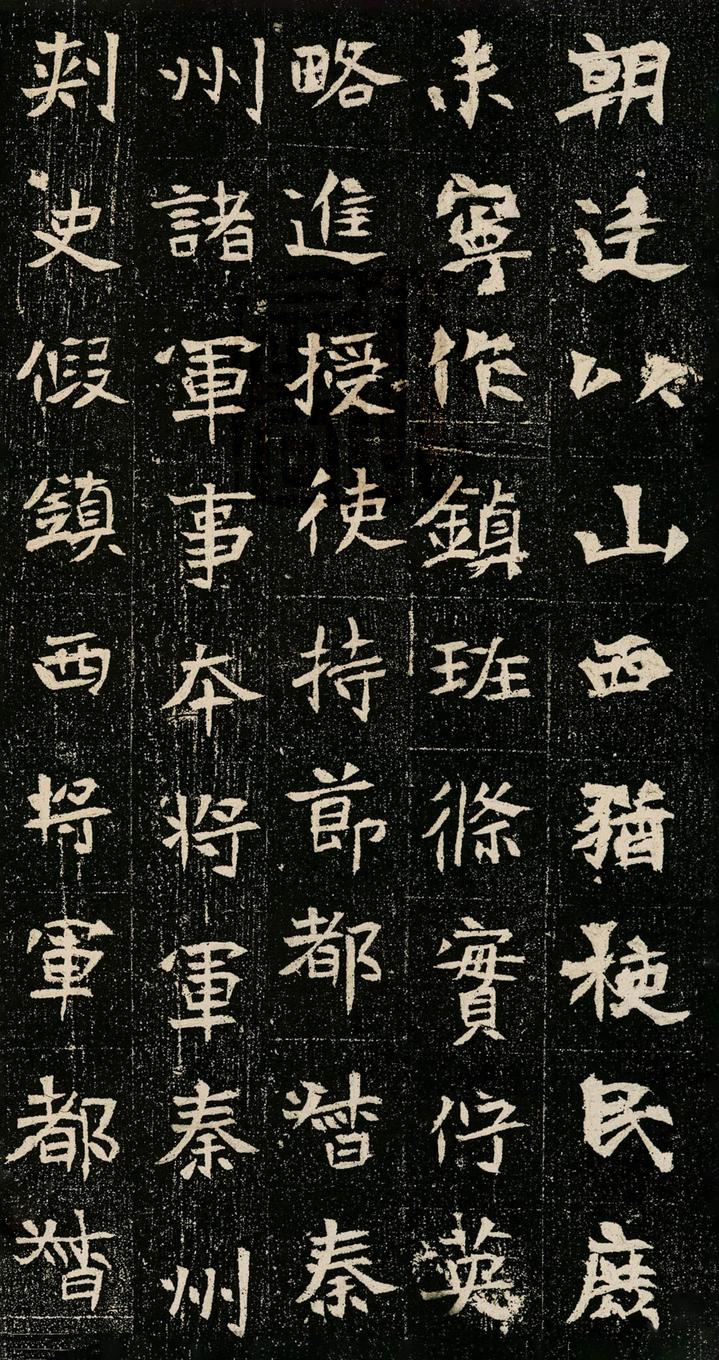 朝廷以山西猶梗民庶
未寧作鎮班條實佇英
略進授使持節都督秦
州諸軍事本將軍秦州
刺史假鎮西將軍都督